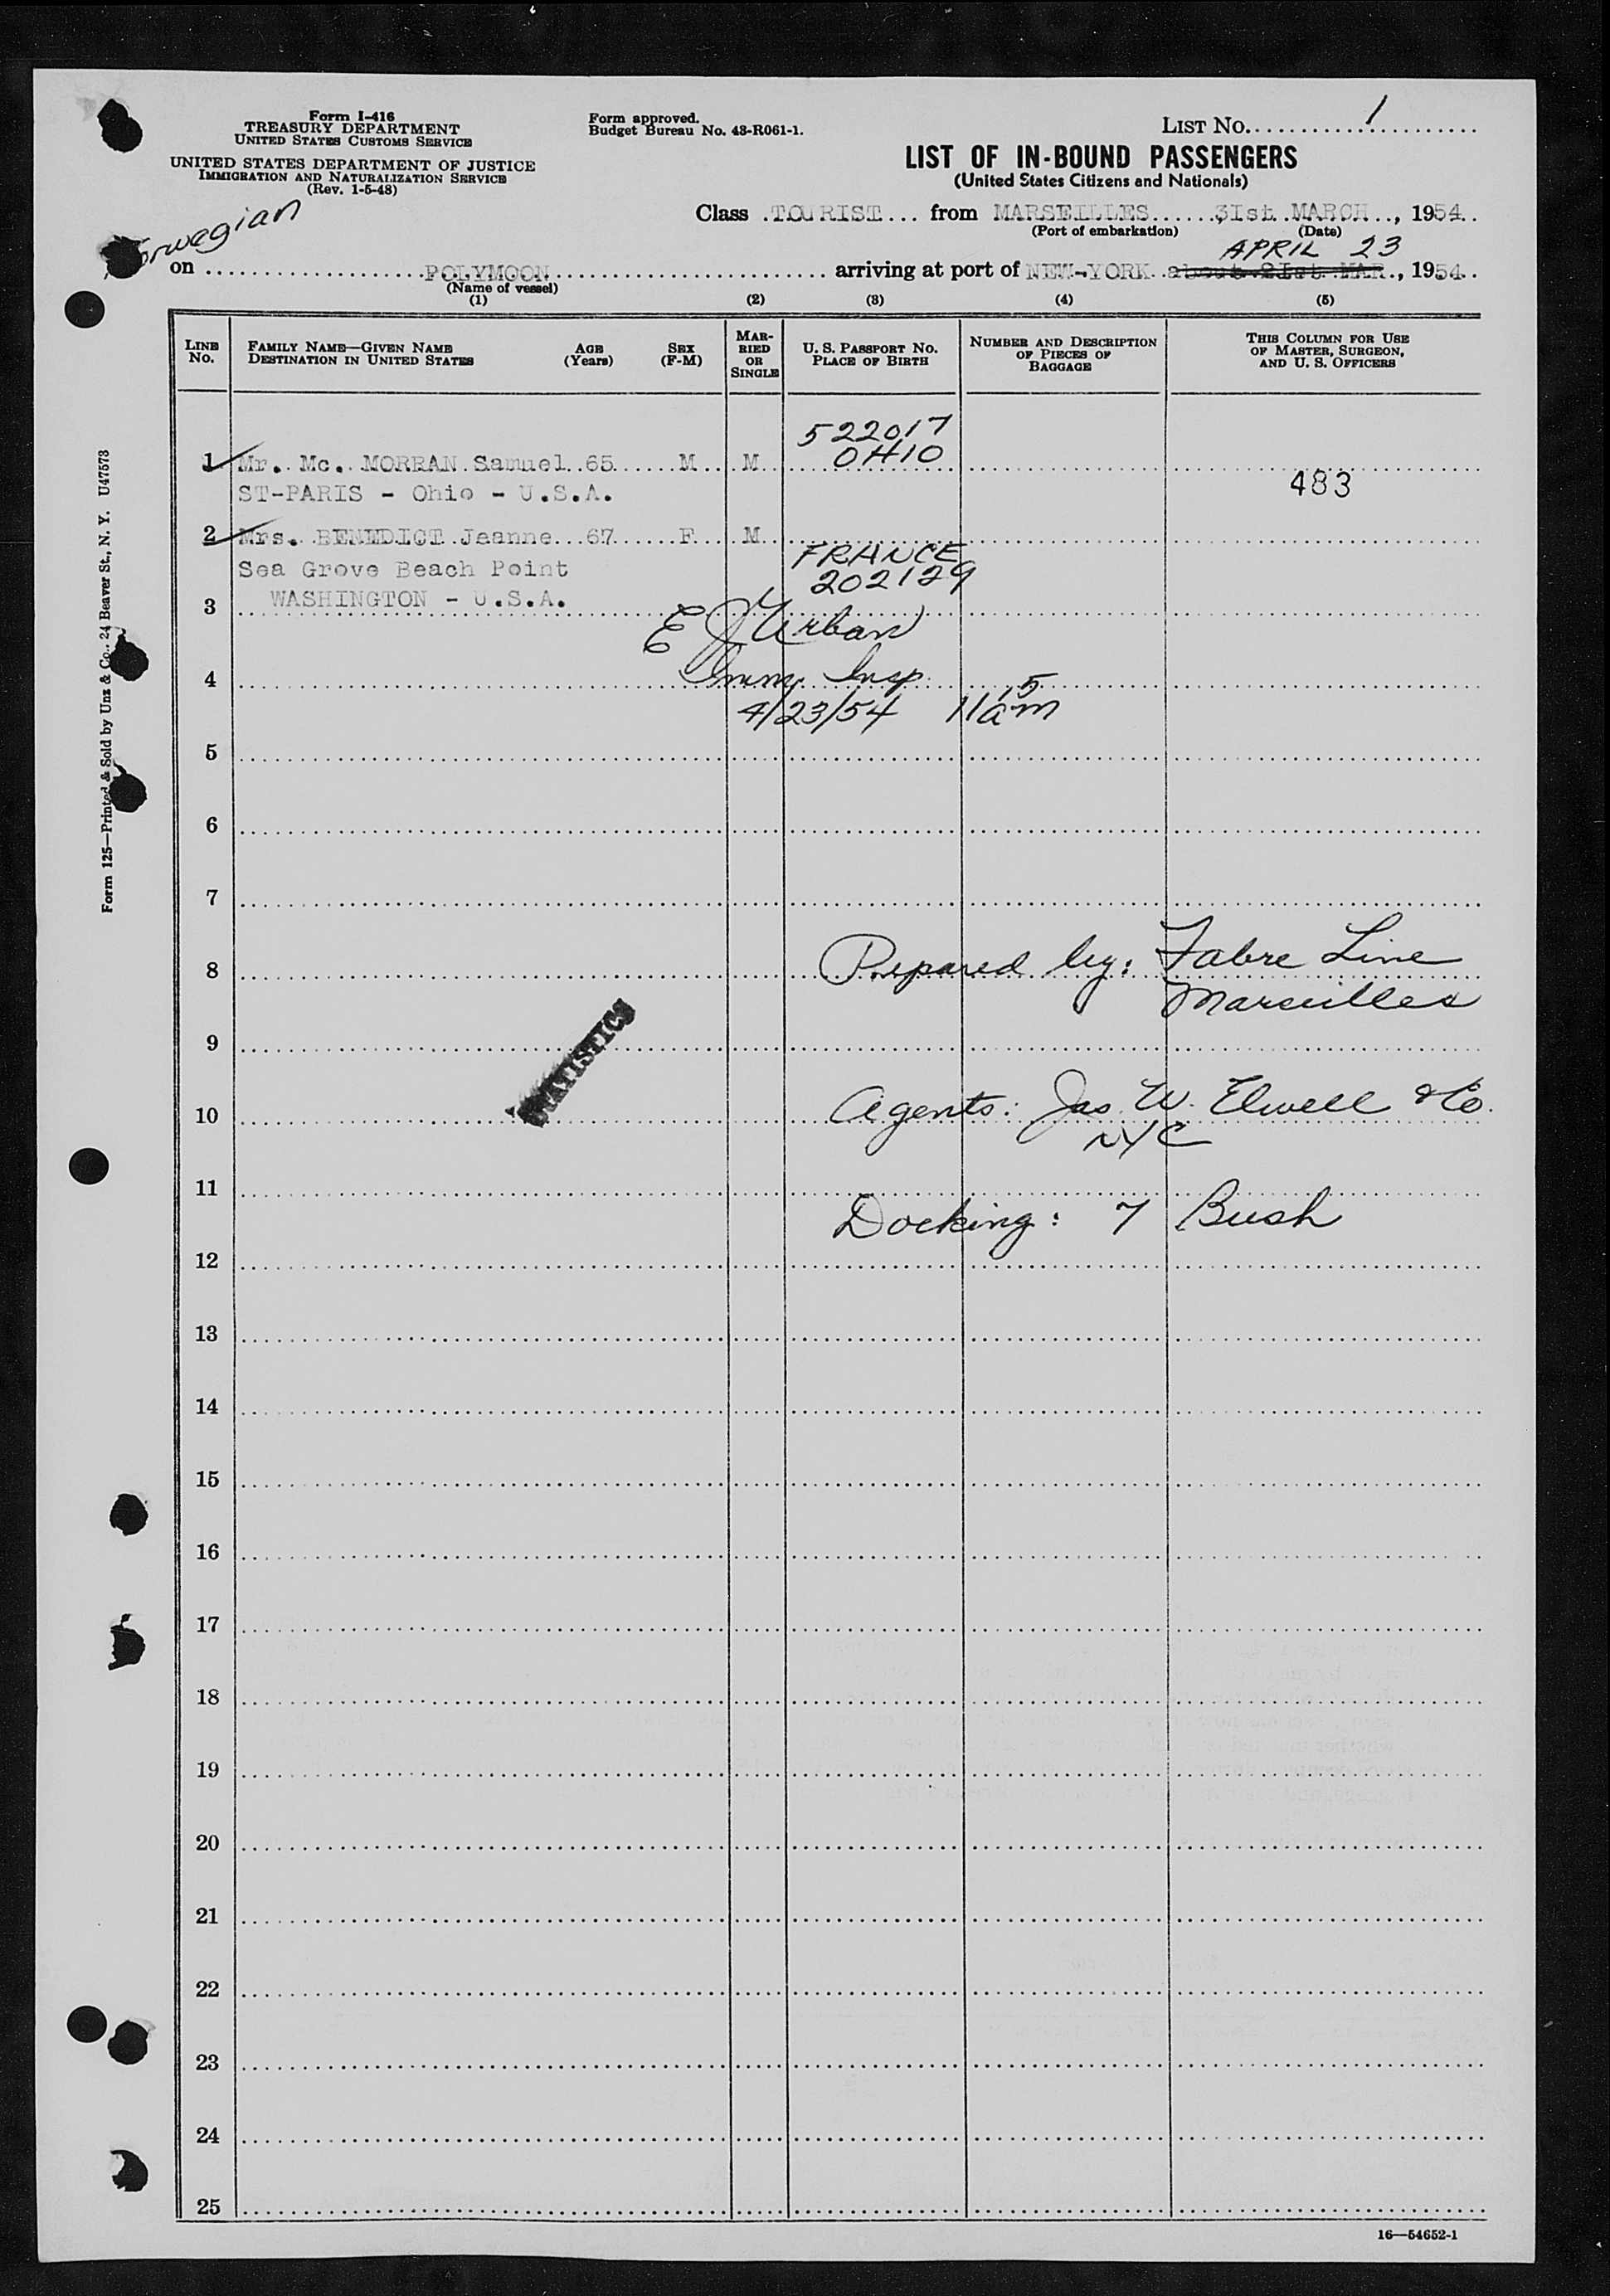 Form I-416
TREASURY DEPARTMENT
UNITED STATES CUSTOMS SERVICE
UNITED STATES DEPARTMENT OF JUSTICE
IMMIGRATION AND NATURALIZATION SERVICE
(Rev. 1-5-48)
Form approved.
Budget Bureau No. 43-R061-1.
LIST No. 1
LIST OF IN-BOUND PASSENGERS
(United States Citizens and Nationals)
Class TOURIST from MARSEILLES 31st MARCH, 1954
(Port of embarkation) (Date)
Norwegian
APRIL 23
on POLYMOON arriving at port of NEW-YORK about 21st MAR, 1954
(Name of vessel)
(1) (2) (3) (4) (5)
LINE No. FAMILY NAME—GIVEN NAME DESTINATION IN UNITED STATES AGE (Years) SEX (F-M) MARRIED OR SINGLE U. S. PASSPORT No. PLACE OF BIRTH NUMBER AND DESCRIPTION OF PIECES OF BAGGAGE THIS COLUMN FOR USE OF MASTER, SURGEON, AND U. S. OFFICERS
522017
1 Mr. Mc. MORRAN Samuel 65 M M OHIO
ST-PARIS - Ohio - U.S.A. 483
2 Mrs. BENEDICT Jeanne 67 F M
FRANCE
Sea Grove Beach Point 202129
3 WASHINGTON - U.S.A.
E J Urban
4 Imm Insp.
4/23/54 11 15 am
5
6
7
8 Prepared by: Fabre Line
Marseilles
9
STATISTICS
10 Agents: Jas. W. Elwell & Co.
NYC
11
Docking: 7 Bush
12
13
14
15
16
17
18
19
20
21
22
23
24
25
16—54652-1
Form 125—Printed & Sold by Unz & Co., 24 Beaver St., N. Y. U47573